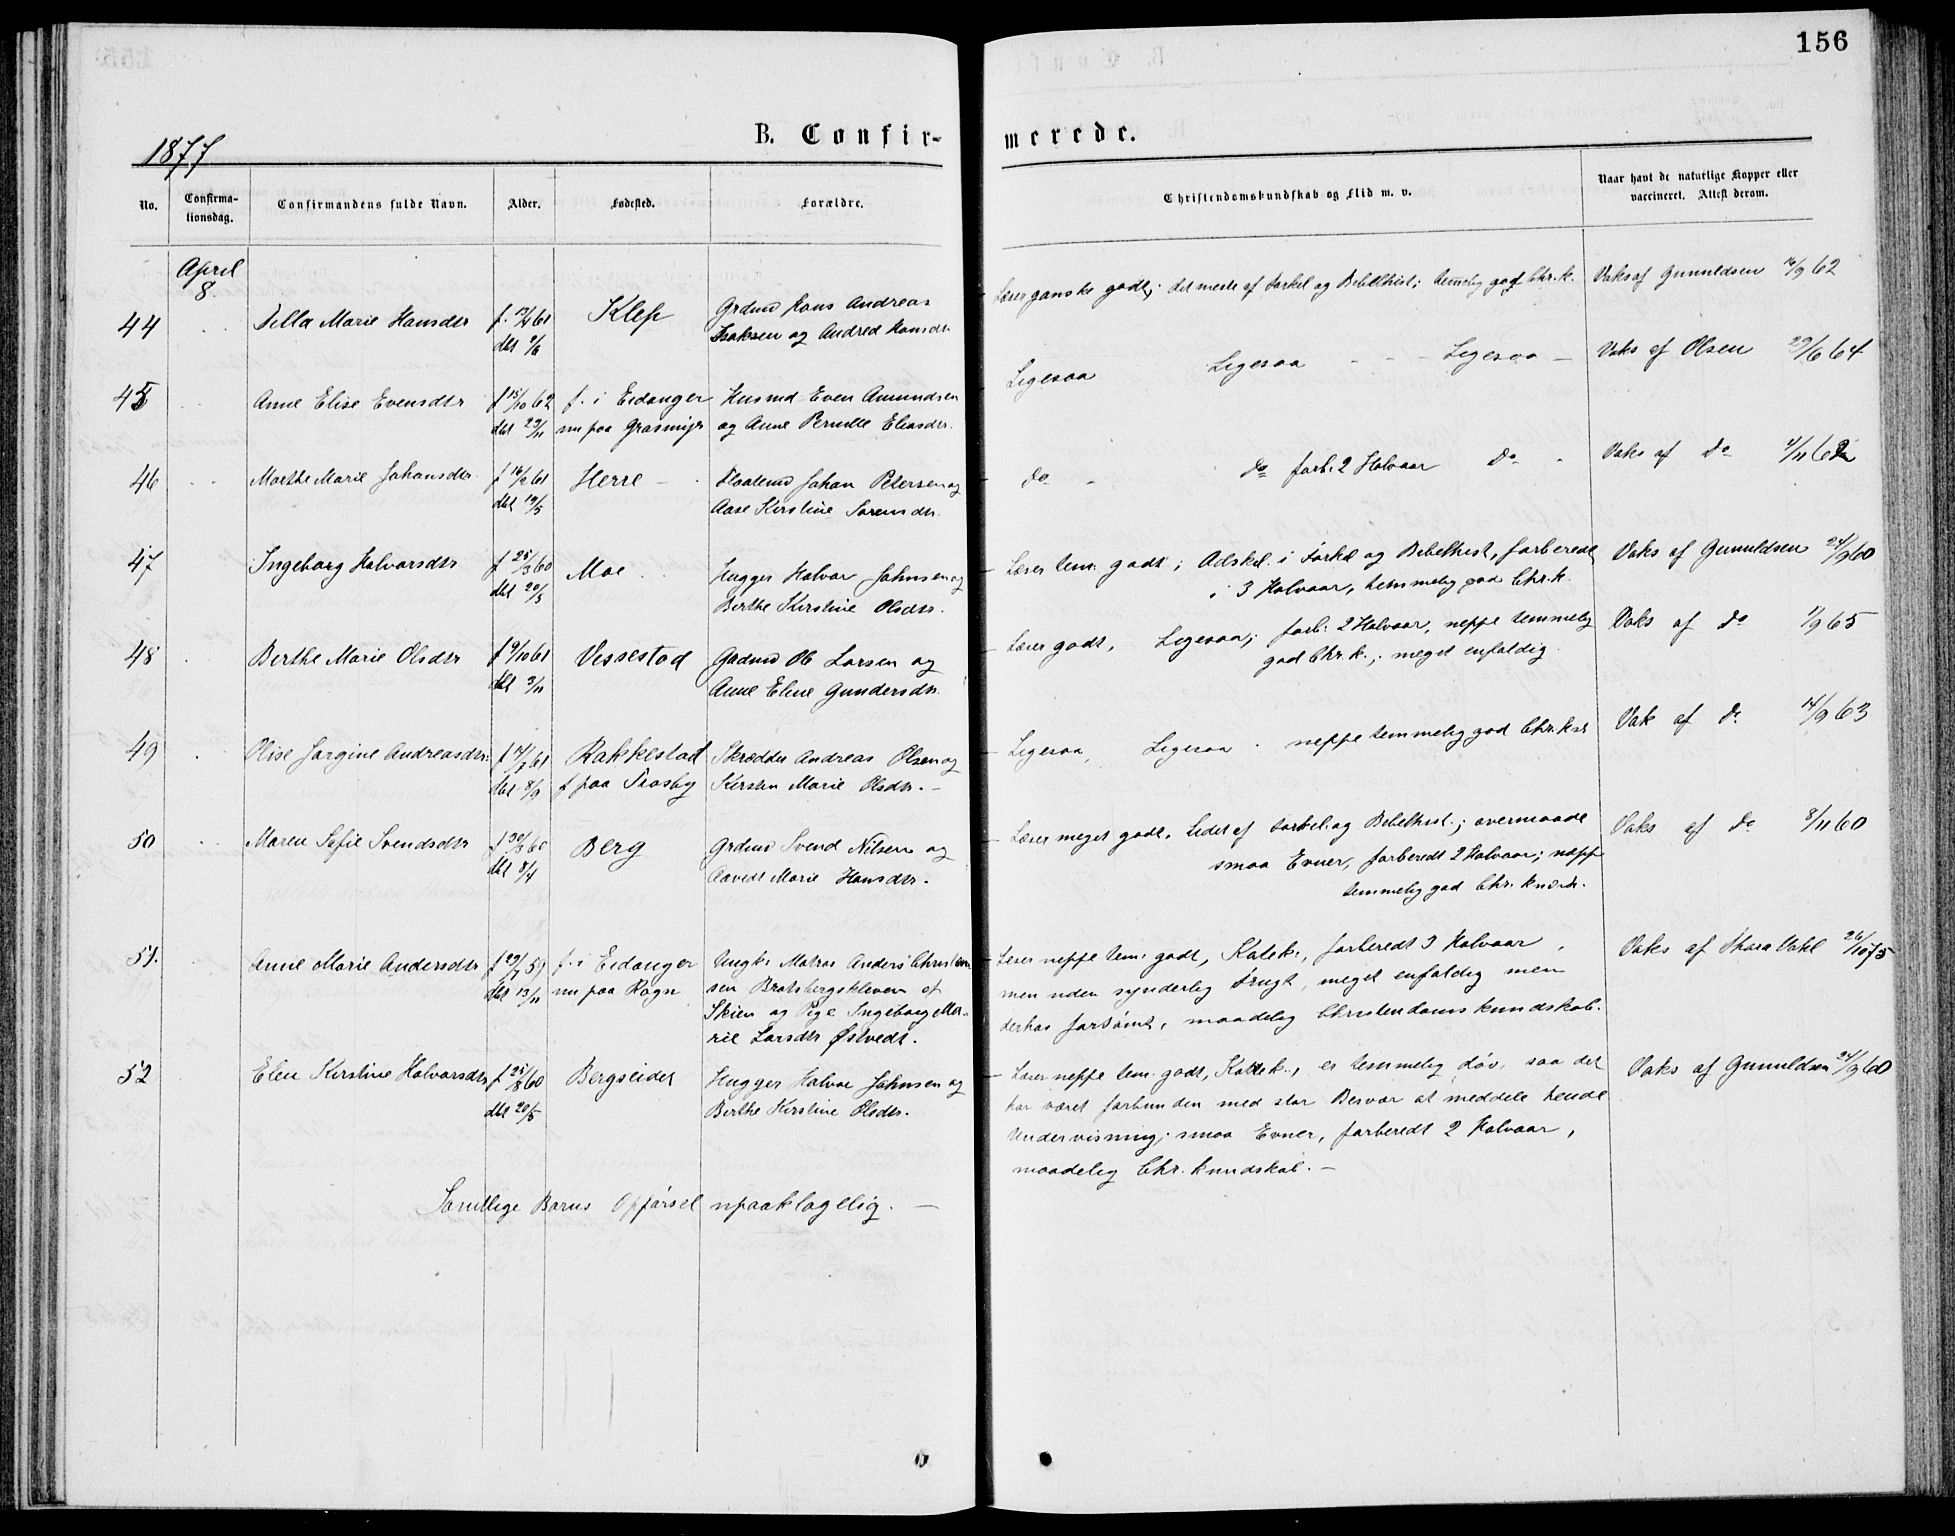 156
1877
B. Confir-
merede.
No.
Confirma-
tionsdag.
Confirmandens fulde Navn.
Alder.
Fødested.
Forældre.
Christendomskundskab og Flid m. v.
Naar havt de naturlige Kopper eller
vaccineret. Attest derom.
April
8.
44 Marie Hansdtr f. 61 Klep Grdmd Hans Andreas
dbt Isaksen og Andrea Hansdtr
Læser ganske godt; det meste af Forkl og Bibelhist; temmelig god Chr.k. Vaks af Gunuldsen /9 62
45 Anne Elise Evensdtr f 15/10 62 f. i Eidanger Husmd Even Amundsen
dbt 29/11 nu paa og Anne Pernille Eliasdtr.
Ligesaa Ligesaa - - - Ligesaa - Vaks af Olsen 29/6 64
46 Marthe Marie Johansdtr f 16/2 61 Herre - Johan Petersen og
dbt 19/5 Aase Kirstine Sørensdtr.
do - do forb. 2 Halvaar do - Vaks af do 4/11 62
47 Ingeborg Halvorsdtr f 25/3 60 Moe Hugger Halvor Johnsen og
dbt 20/5 Berthe Kirstine Olsdtr.
Læser tem. godt; Adskil. i Forkl og Bibelhist, forberedt
i 3 Halvaar, temmelig god Chr.k. Vaks af Gunuldsen 24/9 60
48 Berthe Marie Olsdtr f 9/10 61 Vessestad Gadmd Ole Larsen og
dbt 3/11 Anne Eline Gundersdtr.
Læser godt, Ligesaa; forb. 2 Halvaar, neppe temmelig
god Chr.k.; meget enfoldig. Vaks af do 1/9 65
49 Olise Jørgine Andreasdtr f 14/7 61 Rakkestad Skrædder Andreas Olsen og
dbt 8/9 f paa Trosby Kirsten Marie Olsdtr. -
Ligesaa, Ligesaa. neppe temmelig god Chr.ksk Vak af do 14/9 63
50 Maren Sofie Svendsdtr f 30/3 60 Berg Grdmd Svend Nilsen og
dbt 8/4 Marie Hansdtr.
Læser meget godt. Lidet af Forkl. og Bibelhist.; overmaade
smaa Evner, forberedt 2 Halvaar; neppe
temmelig god Chr. Vaks af do 8/11 60
51. Anne Marie Andersdtr f 29/7 59 f. i Eidanger Ungkr Matros Anders Christen
dbt 13/11 nu paa Rogn sen Bratsbergskleven af
Skien og Pige Ingeborg Ma-
rie Larsdtr Østvedt.
Læser neppe tem. godt, Katek., forberedt 3 Halvaar,
men uden synderlig Frugt, meget enfoldig men
derhos forsømt, maadelig Christendomskundskab. Vaks af Thora Vahl 26/10 75
52 Elen Kirstine Halvorsdtr f 25/3 60 Bergseidet Hugger Halvor Johnsen og
dbt 20/5 Berthe Kirstine Olsdtr.
Læser neppe tem. godt, Katek., er temmelig døv, saa det
har været forbunden med stor Besvær at meddele hende
Undervisning; smaa Evner, forberedt 2 Halvaar,
maadelig Chr. kundskab. - Vaks af Gunuldsen 24/9 60
Samtlige Børns Opførsel upaaklagelig. -